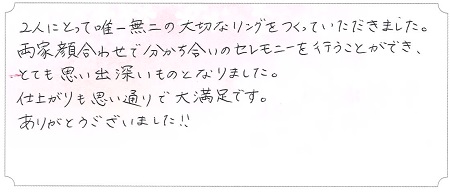 2人にとって唯一無二の大切なリングをつくっていただきました。
両家顔合わせで分かち合いのセレモニーを行うことができ、
とても思い出深いものとなりました。
仕上がりも思い通りで大満足です。
ありがとうございました!!